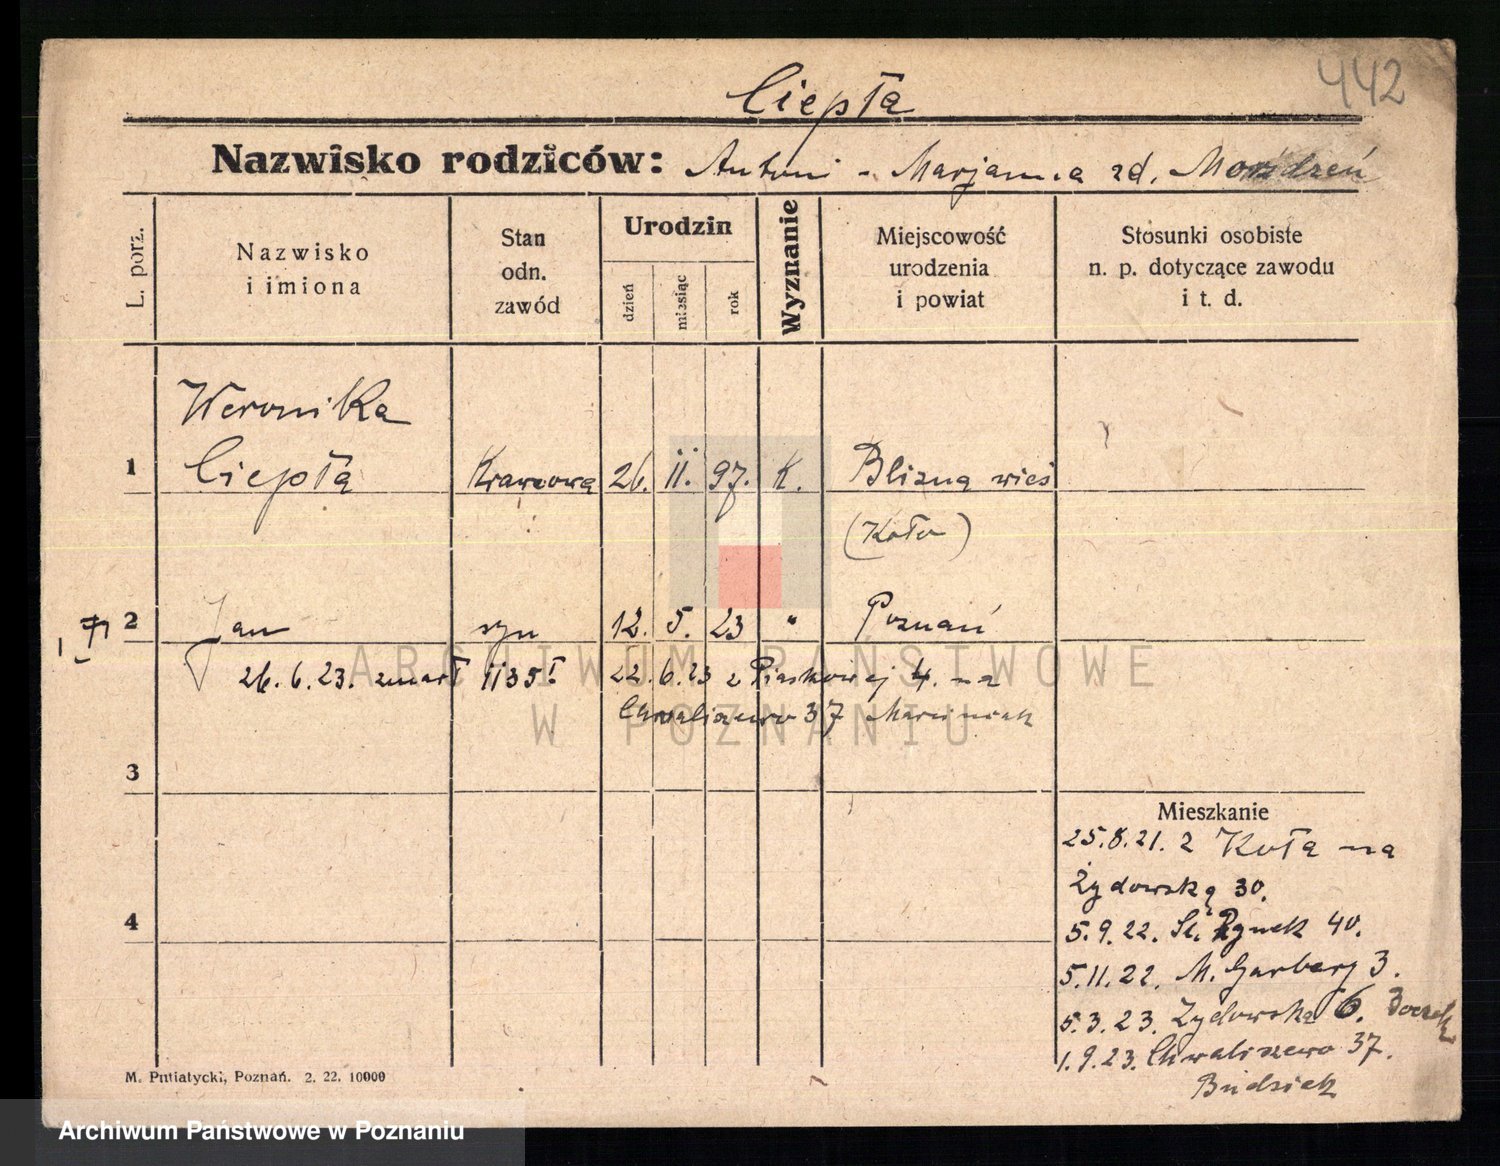 442
Ciepła
Nazwisko rodziców: Antoni - Marjanna zd.
L. porz.
Nazwisko i imiona
Stan odn. zawód
Urodzin
dzień
miesiąc
rok
Wyznanie
Miejscowość urodzenia i powiat
Stosunki osobiste n. p. dotyczące zawodu i t. d.
Weronika
1 Ciepła Krawcowa 26. II. 97. K. Blizna wieś
(Koło)
2 Jan syn 12. 5. 23 " Poznań
26.6.23. zmarł 1135I 22.6.23 z Piaskowej 4. na
Chwaliszewo 37 Marciniak
3
Mieszkanie
25.8.21. z Koła na
Żydowską 30.
4
5.9.22. St. Rynek 40.
5.11.22. M. Garbary 3.
5.3.23. Żydowska 6.
1.9.23. Chwaliszewo 37.
Budziak
M. Putiatycki, Poznań. 2. 22. 10000
ARCHIWUM PAŃSTWOWE
W POZNANIU
Archiwum Państwowe w Poznaniu